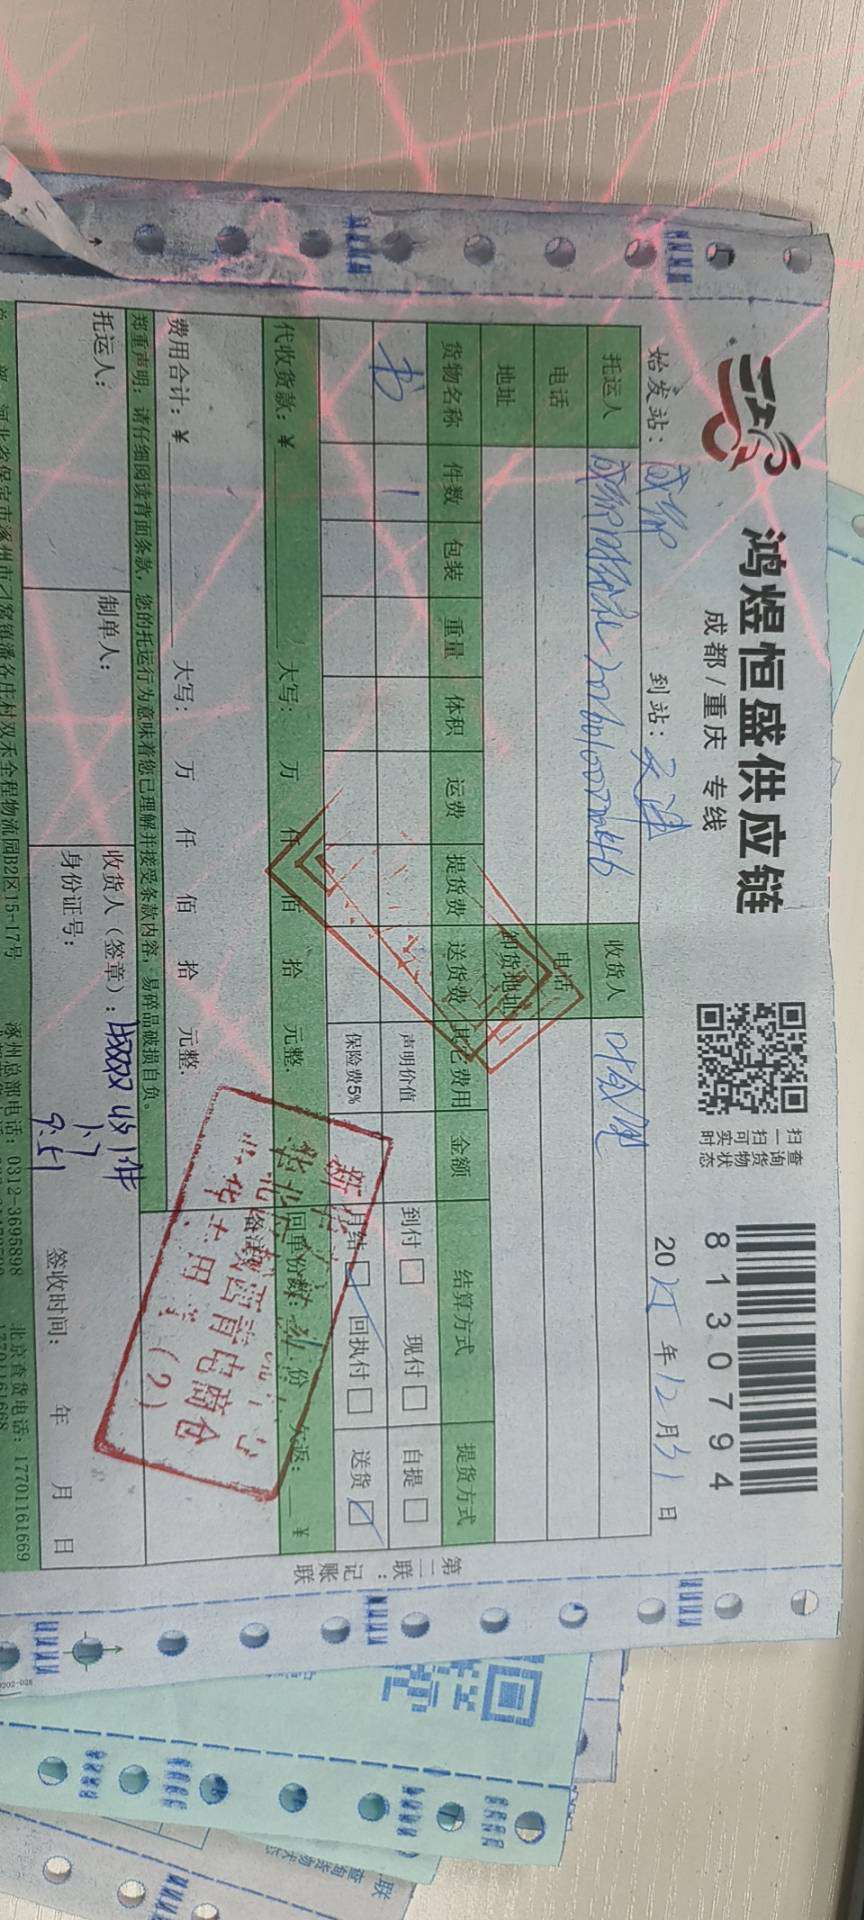 鸿煜恒盛供应链
成都/重庆 专线
扫一扫
查询货物状态
可实时
8130794
始发站：成都
到站：天津
2025年12月31日
托运人
收货人
电话
电话
地址
卸货地址
货物名称 件数 包装 重量 体积 运费 提货费 送货费 其它费用 金额 结算方式 提货方式
书 1
声明价值
到付 现付 自提
保险费5%
月结 回执付 送货
代收货款：¥ 大写： 万 仟 佰 拾 元整.
回单份数： 份 欠返： ¥
费用合计：¥ 大写： 万 仟 佰 拾 元整.
备注
郑重声明：请仔细阅读背面条款，您的托运行为意味着您已理解并接受条款内容，易碎品破损自负。
托运人：
制单人：
收货人（签章）：
收件
1.7
9:51
身份证号：
签收时间： 年 月 日
西青电商仓
专用章（2）
第二联：记账联
河北省保定市涿州市刁窝镇潘各庄村双禾全程物流园B2区15-17号
涿州总部电话：0312-3695898
北京查货电话：17701161669
17701161668